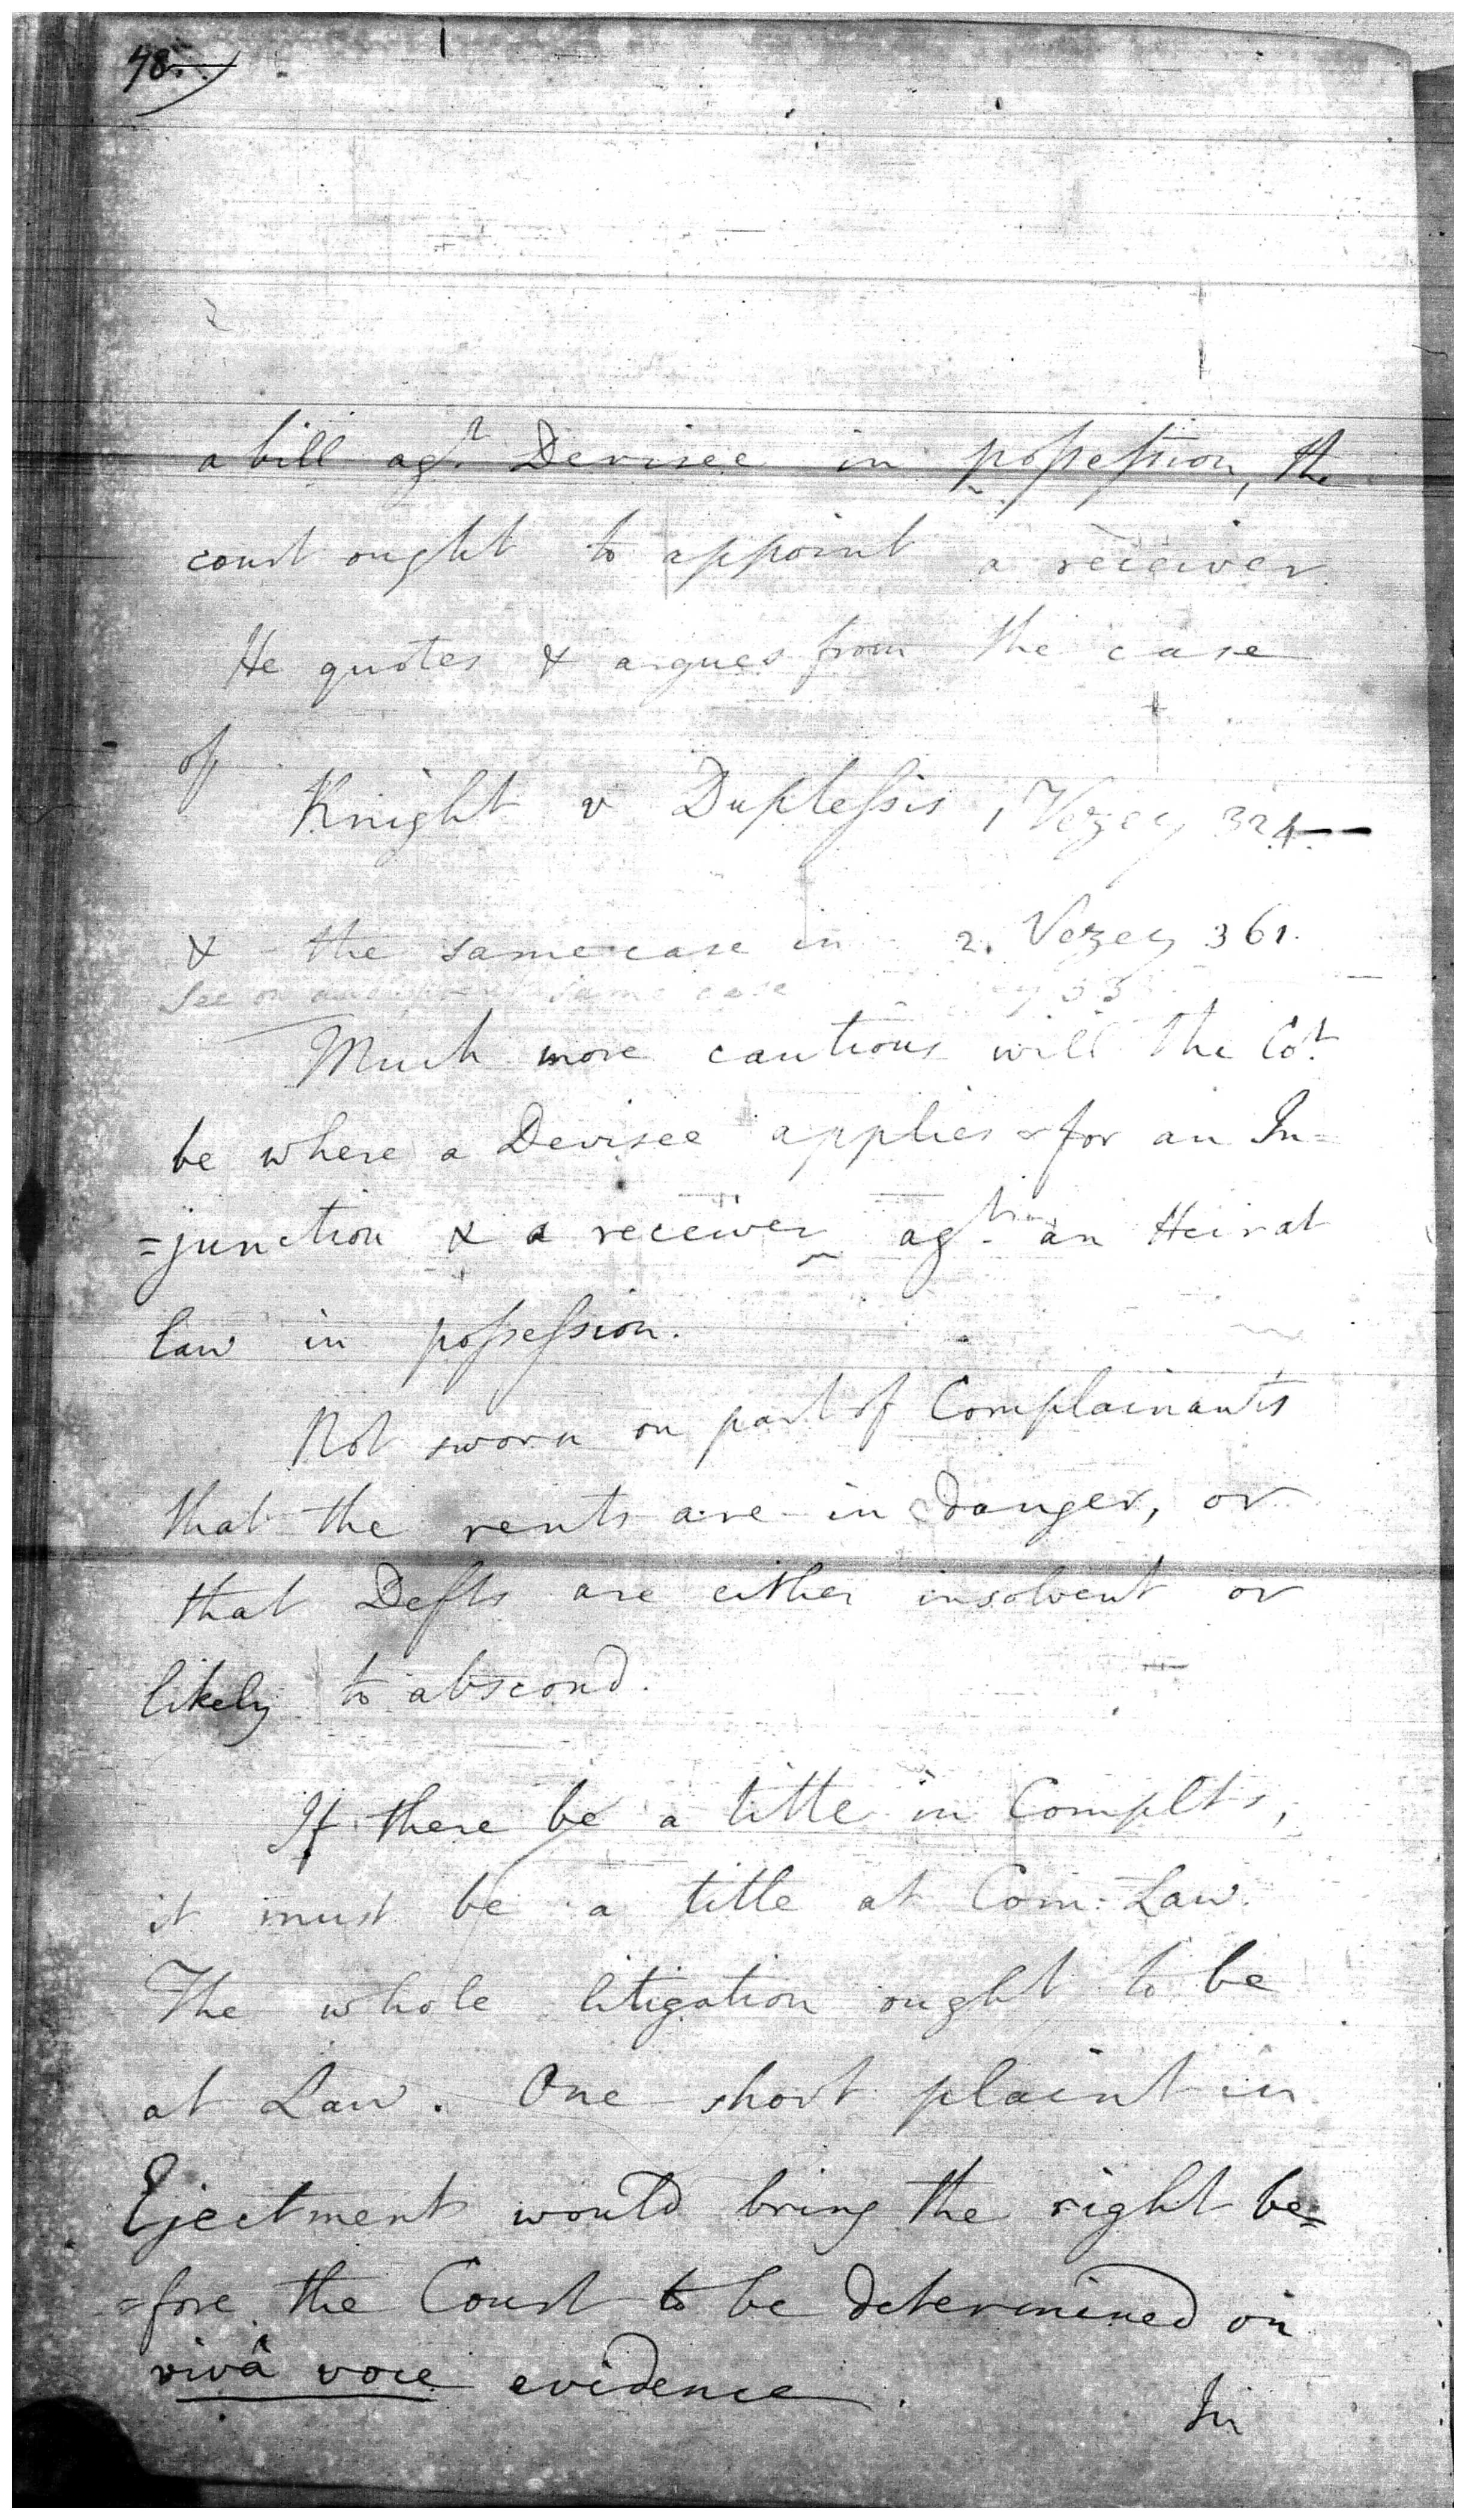 48.
a bill agt. Devisee in possession, the
court ought to appoint a receiver
He quotes & argues from the case
of
Knight v Duplessis 1 Vezey 324
& the same case in 2. Vezey 361.
See on same case
Much more cautious will the Cot.
be where a Devisee applies for an In=
=junction & a receiver agt. an Heir at
law in possession.
Not sworn on part of Complainants
that the rents are in danger, or
that Defts are either insolvent or
likely to abscond.
If there be a title in Complts,
it must be a title at Com: Law.
The whole litigation ought to be
at Law. One short plaint in
Ejectment would bring the right be=
=fore the Court to be determined on
vivâ voce evidence.
In